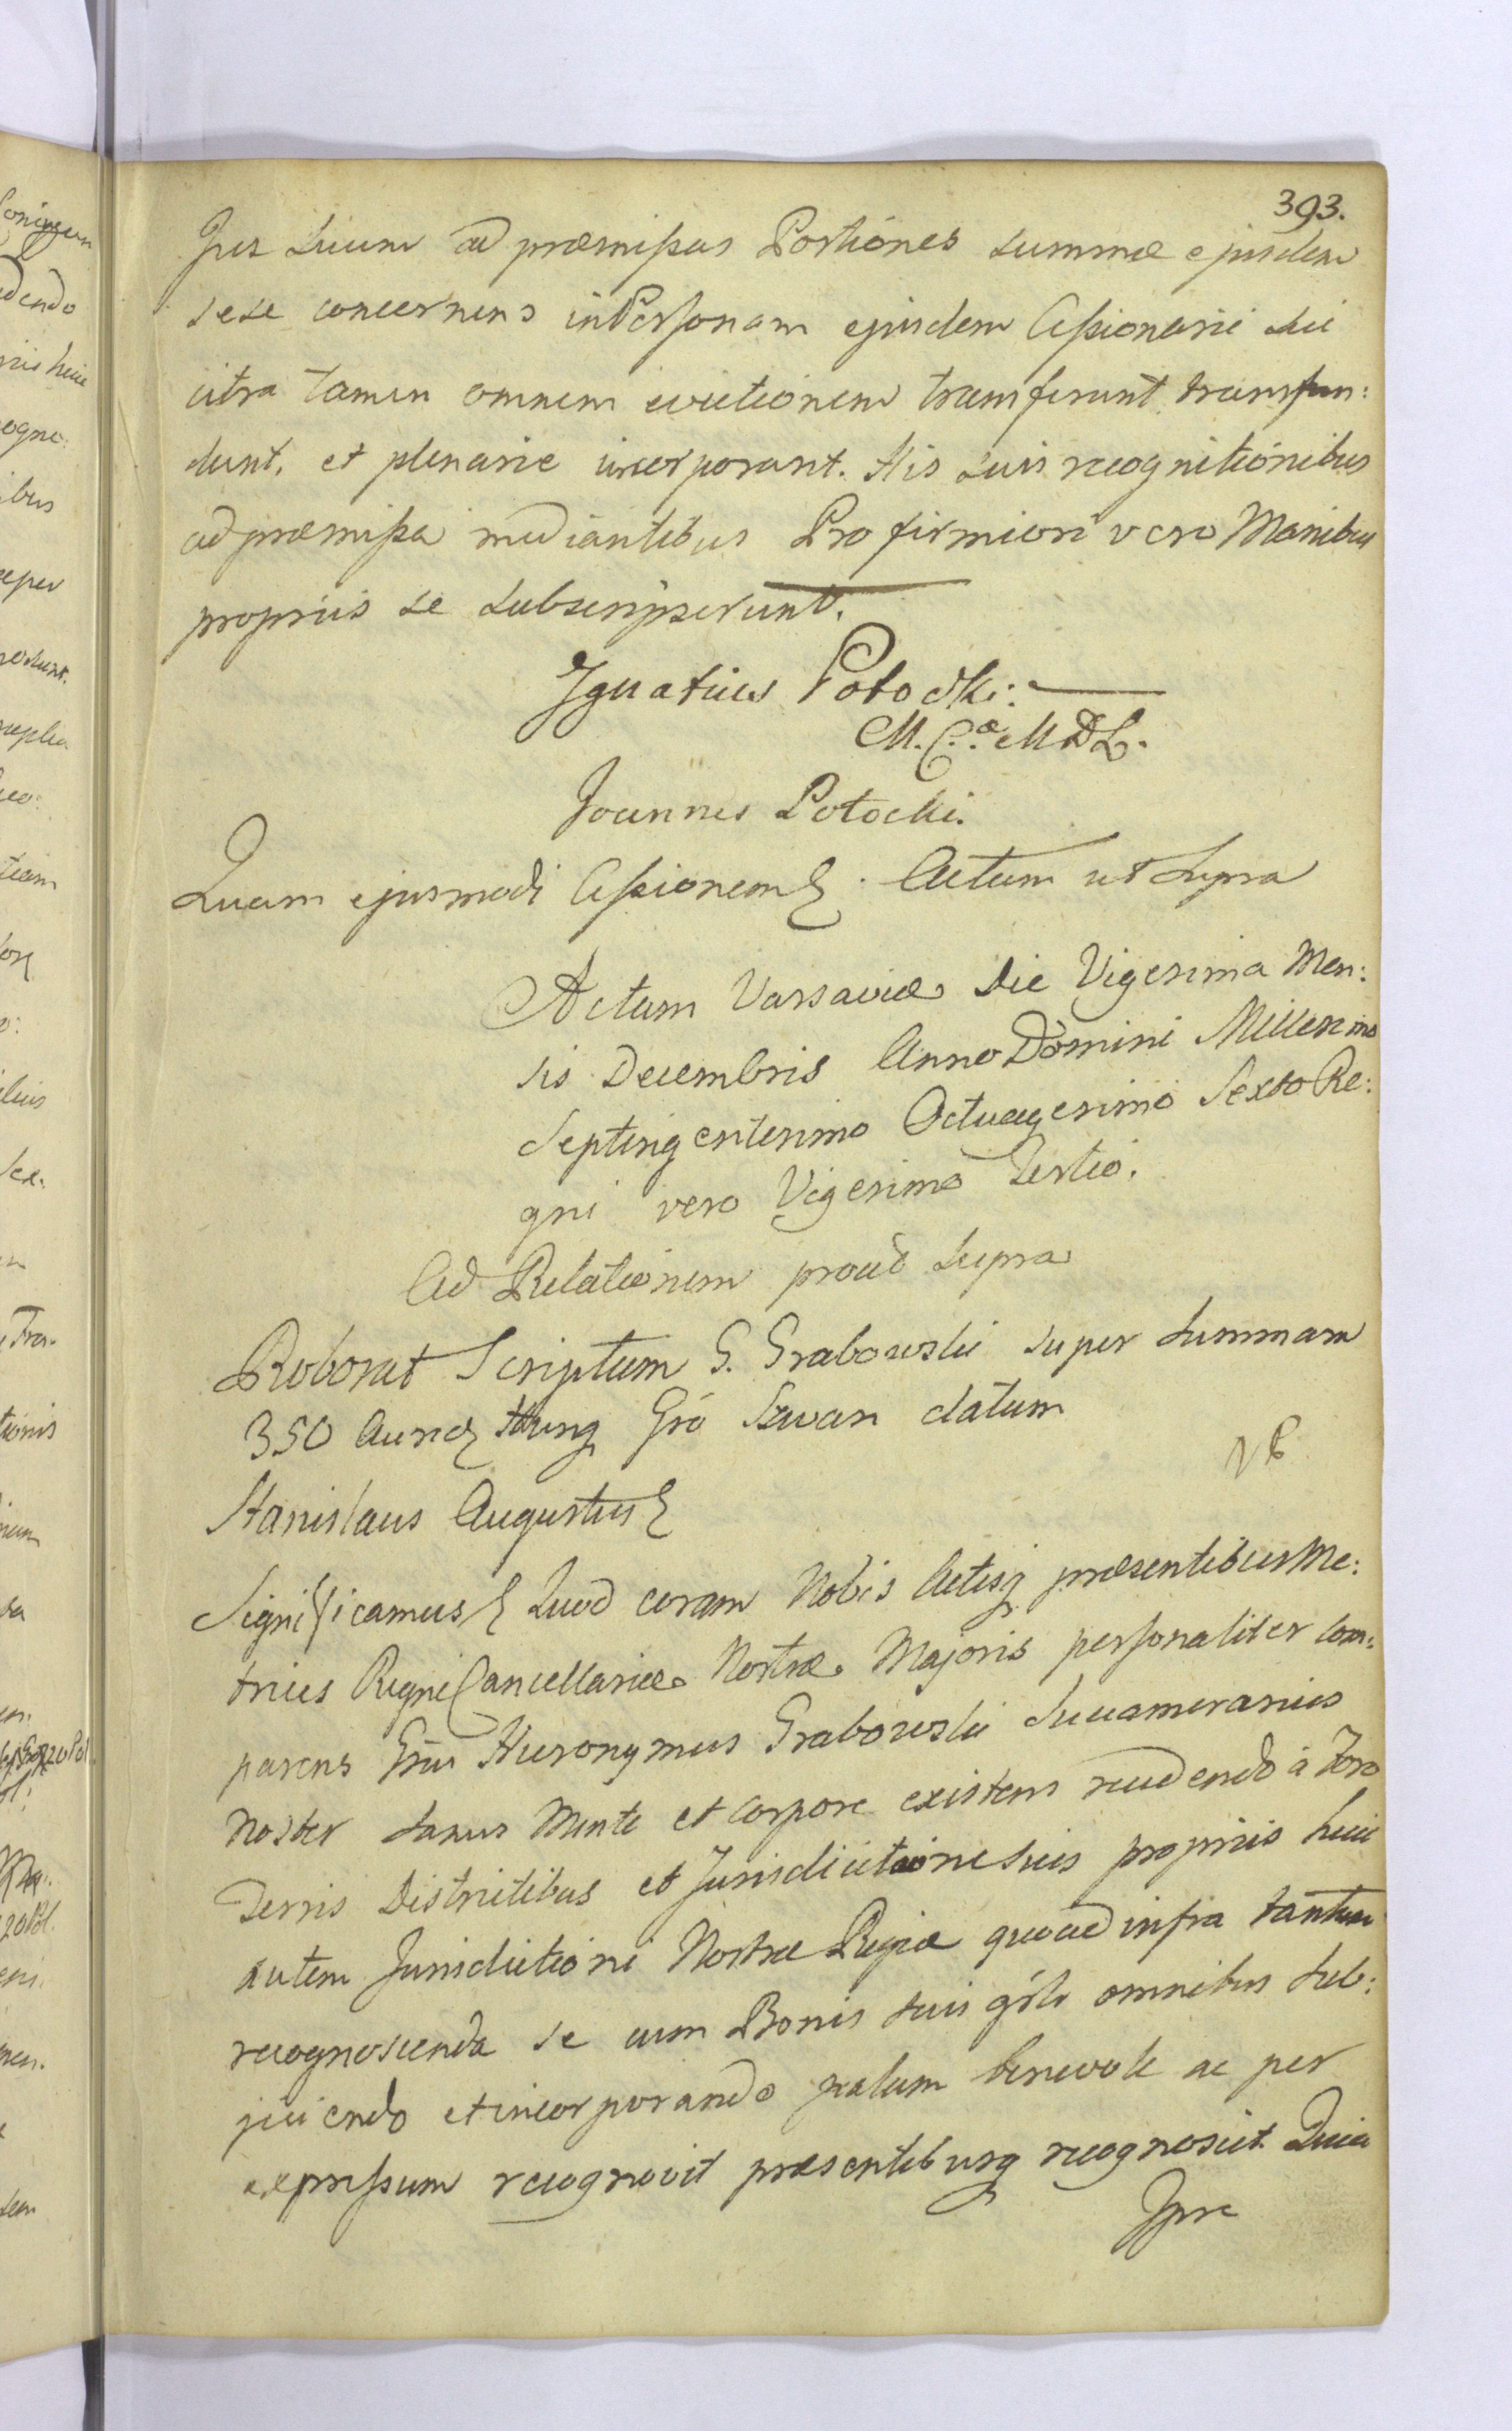 393.
Jus Suum ad præmissas Portiones Summæ ejusdem
sese concernens in Personam ejusdem Cessionarii sui
citra tamen omnem evictionem transferunt transfun:
dunt, et plenarie incorporant. His suis recognitionibus
ad præmissa mediantibus Pro firmiori vero Manibus
propriis se subscripserunt.
Ignatius Potocki:
M. C.æ M D L.
Joannes Potocki.
Quam ejusmodi Cessionem Actum ut Supra
Actum Varsaviæ Die Vigesima Men:
sis Decembris Anno Domini Millesimo
Septingentesimo Octuagesimo Sexto Re:
gni vero Vigesimo Tertio.
Ad Relationem prout Supra
Roborat Scriptum G. Grabowski super Summam
350 Aureor Hung Gro Szwan datum
Stanislaus Augustus
Significamus Quod coram Nobis Actisq præsentibus Me:
trices Regni Cancellariæ Nostræ Majoris personaliter com:
parens Grus Hieronymus Grabowski Succamerarius
Noster Sanus Mente et Corpore existens recedendo à Foro
Terris Districtibus et Jurisdictione suis propriis huic
autem Jurisdictioni Nostræ Regiæ quoad infra tantum
recognoscenda se cum Bonis suis grlr omnibus sub:
jiciendo et incorporando palam benevole ac per
expressum recognovit præsentibusq recognoscit Quia
Ipse